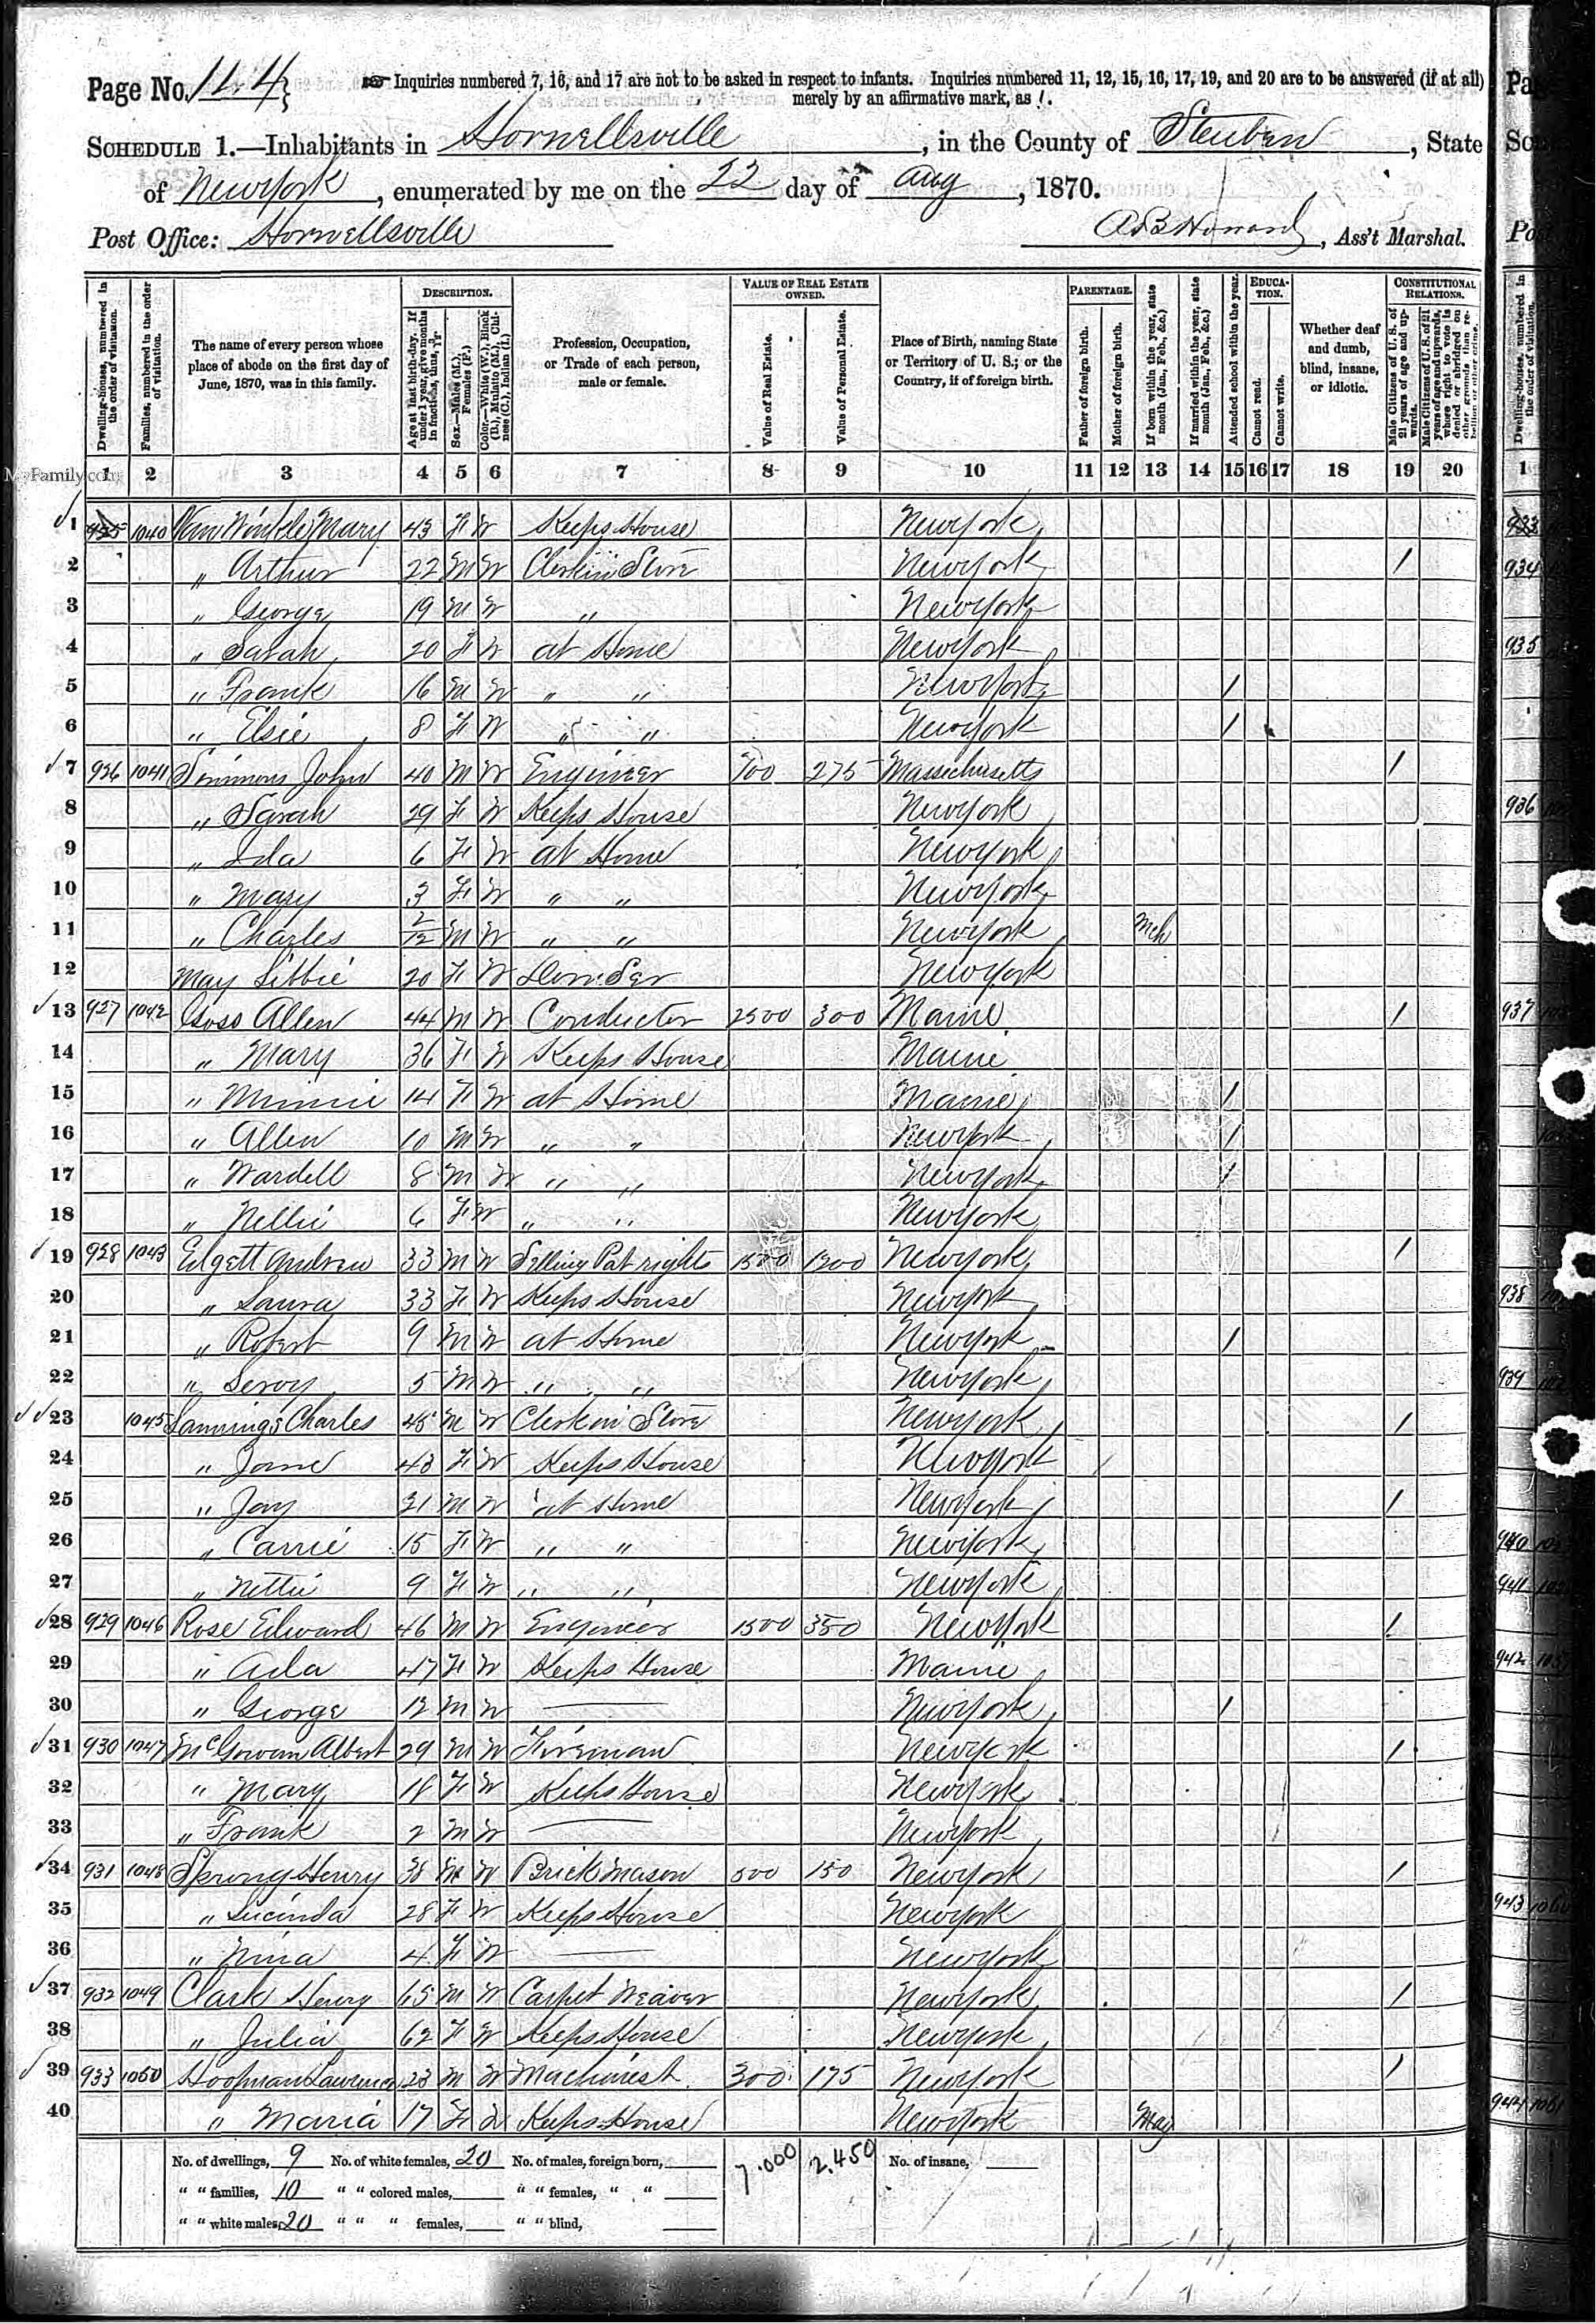 Page No. 114
Inquiries numbered 7, 16, and 17 are not to be asked in respect to infants. Inquiries numbered 11, 12, 15, 16, 17, 19, and 20 are to be answered (if at all)
merely by an affirmative mark, as /.
SCHEDULE 1.—Inhabitants in Hornellsville, in the County of Steuben, State
of New York, enumerated by me on the 22 day of Aug, 1870.
Post Office: Hornellsville
Howard, Ass't Marshal.
Dwelling-houses, numbered in the order of visitation.
Families, numbered in the order of visitation.
The name of every person whose place of abode on the first day of June, 1870, was in this family.
DESCRIPTION.
Age at last birth-day. If under 1 year, give months in fractions, thus, 3/12
Sex.—Males (M.), Females (F.)
Color.—White (W.), Black (B.), Mulatto (M.), Chinese (C.), Indian (I.)
Profession, Occupation, or Trade of each person, male or female.
VALUE OF REAL ESTATE OWNED.
Value of Real Estate.
Value of Personal Estate.
Place of Birth, naming State or Territory of U. S.; or the Country, if of foreign birth.
PARENTAGE.
Father of foreign birth.
Mother of foreign birth.
If born within the year, state month (Jan., Feb., &c.)
If married within the year, state month (Jan., Feb., &c.)
Attended school within the year.
EDUCATION.
Cannot read.
Cannot write.
Whether deaf and dumb, blind, insane, or idiotic.
CONSTITUTIONAL RELATIONS.
Male Citizens of U. S. of 21 years of age and upwards.
Male Citizens of U. S. of 21 years of age and upwards, whose right to vote is denied or abridged on other grounds than rebellion or other crime.
MyFamily.com
1 2 3 4 5 6 7 8 9 10 11 12 13 14 15 16 17 18 19 20
1 925 1040 Van Winkle Mary 43 F W Keeps House New York
2 " Arthur 22 M W Clerk in Store New York /
3 " George 19 M W " New York
4 " Sarah 20 F W at Home New York
5 " Frank 16 M W " " New York /
6 " Elsie 8 F W " " New York /
7 926 1041 Simmons John 40 M W Engineer 700 275 Massachusetts /
8 " Sarah 29 F W Keeps House New York
9 " Ida 6 F W at Home New York
10 " Mary 3 F W " " New York
11 " Charles 2/12 M W " " New York Mch
12 May Libbie 20 F W Dom. Ser New York
13 927 1042 Goss Allen 44 M W Conductor 2500 300 Maine /
14 " Mary 36 F W Keeps House Maine
15 " Minnie 14 F W at Home Maine /
16 " Allen 10 M W " " New York /
17 " Wardell 8 M W " " New York /
18 " Nellie 6 F W " " New York
19 928 1043 Edgett Andrew 33 M W Selling Pat rights 1500 1200 New York /
20 " Laura 33 F W Keeps House New York
21 " Robert 9 M W at Home New York /
22 " Leroy 5 M W " " New York
23 1045 Lannings Charles 45 M W Clerk in Store New York /
24 " Jane 43 F W Keeps House New York /
25 " Jay 21 M W at Home New York /
26 " Carrie 15 F W " " New York
27 " Nettie 9 F W " " New York
28 929 1046 Rose Edward 46 M W Engineer 1500 350 New York /
29 " Ada 47 F W Keeps House Maine
30 " George 12 M W — New York /
31 930 1047 McGowan Albert 29 M W Fireman New York /
32 " Mary 18 F W Keeps House New York
33 " Frank 2 M W — New York
34 931 1048 Sprung Henry 38 M W Brick Mason 500 150 New York /
35 " Lucinda 28 F W Keeps House New York
36 " Nina 4 F W — New York
37 932 1049 Clark Henry 65 M W Carpet Weaver New York /
38 " Julia 62 F W Keeps House New York
39 933 1050 Hoofman Lawrence 23 M W Machinist 300 175 New York /
40 " Maria 17 F W Keeps House New York May
No. of dwellings, 9 No. of white females, 20 No. of males, foreign born, 7.000 2.450 No. of insane,
" " families, 10 " " colored males, " " females, " "
" " white males, 20 " " " females, " " blind,